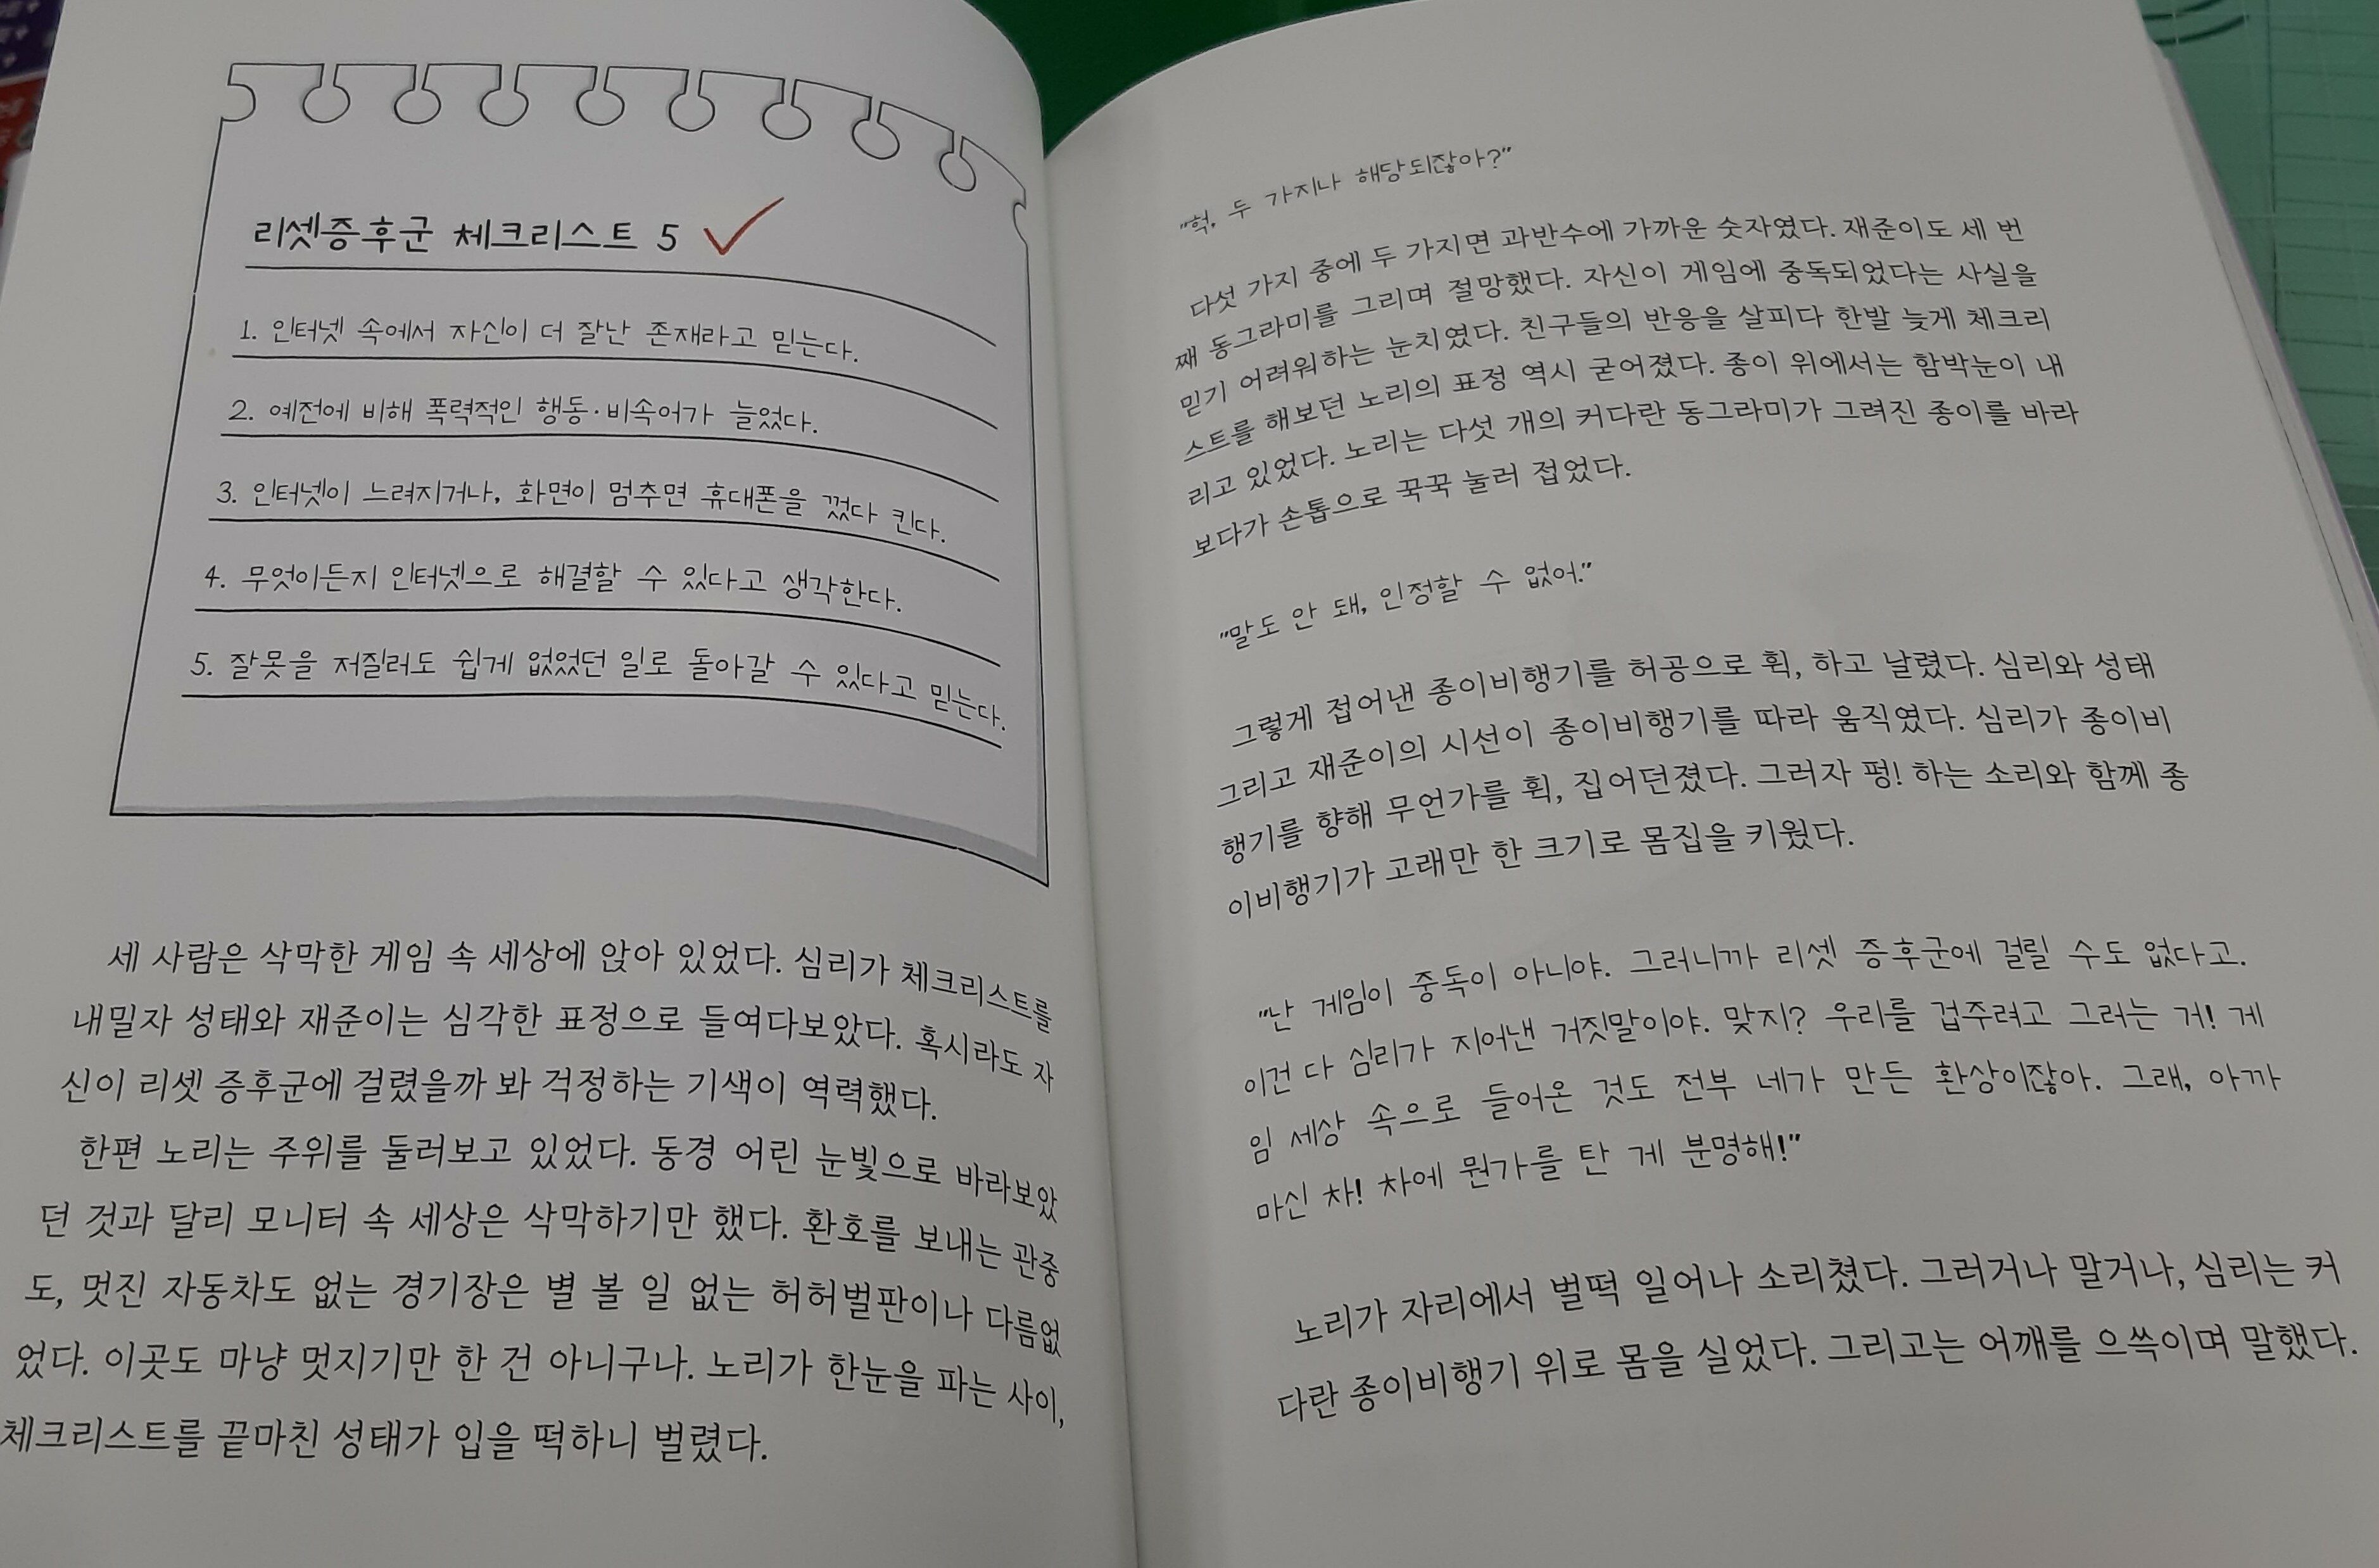 리셋증후군 체크리스트 5
1. 인터넷 속에서 자신이 더 잘난 존재라고 믿는다.
2. 예전에 비해 폭력적인 행동·비속어가 늘었다.
3. 인터넷이 느려지거나, 화면이 멈추면 휴대폰을 껐다 킨다.
4. 무엇이든지 인터넷으로 해결할 수 있다고 생각한다.
5. 잘못을 저질러도 쉽게 없었던 일로 돌아갈 수 있다고 믿는다.
세 사람은 삭막한 게임 속 세상에 앉아 있었다. 심리가 체크리스트를
내밀자 성태와 재준이는 심각한 표정으로 들여다보았다. 혹시라도 자
신이 리셋 증후군에 걸렸을까 봐 걱정하는 기색이 역력했다.
한편 노리는 주위를 둘러보고 있었다. 동경 어린 눈빛으로 바라보았
던 것과 달리 모니터 속 세상은 삭막하기만 했다. 환호를 보내는 관중
도, 멋진 자동차도 없는 경기장은 별 볼 일 없는 허허벌판이나 다름없
었다. 이곳도 마냥 멋지기만 한 건 아니구나. 노리가 한눈을 파는 사이,
체크리스트를 끝마친 성태가 입을 떡하니 벌렸다.
"헉, 두 가지나 해당되잖아?"
다섯 가지 중에 두 가지면 과반수에 가까운 숫자였다. 재준이도 세 번
째 동그라미를 그리며 절망했다. 자신이 게임에 중독되었다는 사실을
믿기 어려워하는 눈치였다. 친구들의 반응을 살피다 한발 늦게 체크리
스트를 해보던 노리의 표정 역시 굳어졌다. 종이 위에서는 함박눈이 내
리고 있었다. 노리는 다섯 개의 커다란 동그라미가 그려진 종이를 바라
보다가 손톱으로 꾹꾹 눌러 접었다.
"말도 안 돼, 인정할 수 없어."
그렇게 접어낸 종이비행기를 허공으로 휙, 하고 날렸다. 심리와 성태
그리고 재준이의 시선이 종이비행기를 따라 움직였다. 심리가 종이비
행기를 향해 무언가를 휙, 집어던졌다. 그러자 펑! 하는 소리와 함께 종
이비행기가 고래만 한 크기로 몸집을 키웠다.
"난 게임이 중독이 아니야. 그러니까 리셋 증후군에 걸릴 수도 없다고.
이건 다 심리가 지어낸 거짓말이야. 맞지? 우리를 겁주려고 그러는 거! 게
임 세상 속으로 들어온 것도 전부 네가 만든 환상이잖아. 그래, 아까
마신 차! 차에 뭔가를 탄 게 분명해!"
노리가 자리에서 벌떡 일어나 소리쳤다. 그러거나 말거나, 심리는 커
다란 종이비행기 위로 몸을 실었다. 그리고는 어깨를 으쓱이며 말했다.